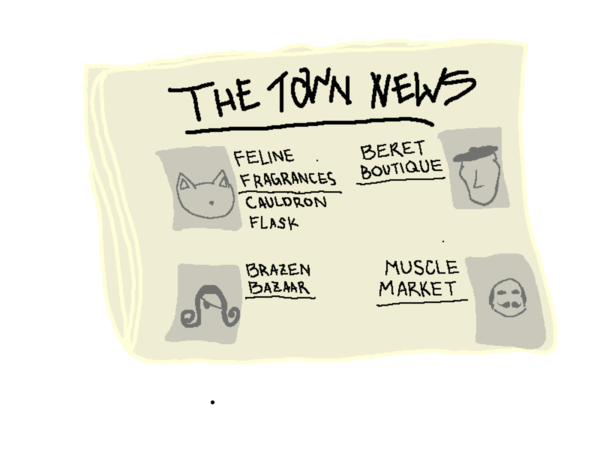 THE TOWN NEWS
FELINE
FRAGRANCES
CAULDRON
FLASK
BERET
BOUTIQUE
BRAZEN
BAZAAR
MUSCLE
MARKET